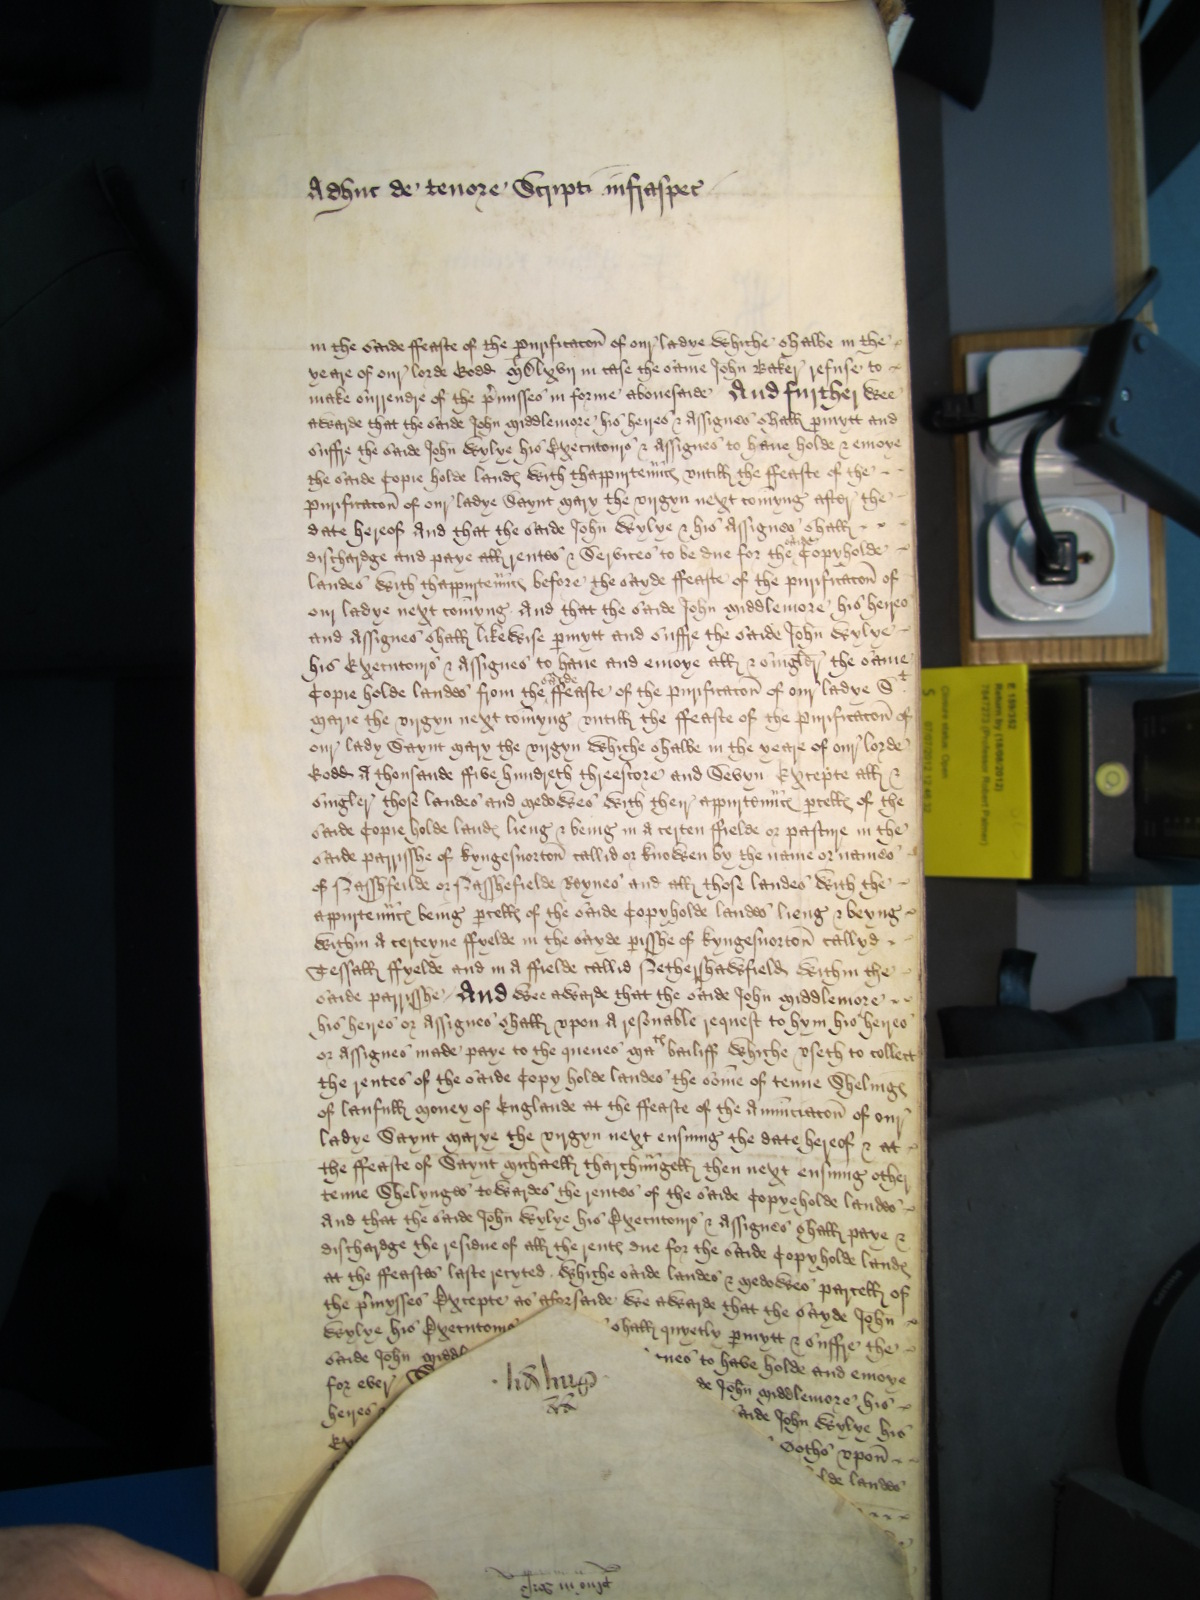 Adhuc de tenore Scripti infraspec
in the saide ffeaste of the purificacon of our ladye whiche shalbe in the
yeare of our lorde Godd in case the same John Baker refuse to
make surrendre of the p'misses in forme abovesaide And further wee
awarde that the saide John Middlemore his heires & Assignes shall p'mytt and
suffre the saide John Wylye his Executours & Assignes to have holde & enioye
the saide Copie holde landes with thappurtenncs untill the ffeaste of the
purificacon of our ladye Saynt Mary the virgyn next comyng after the
date hereof And that the saide John Wylye & his Assignes shall
dischardge and paye all rentes & Services to be due for the saide Copyholde
landes with thappurtenncs before the sayde ffeaste of the purificacon of
our ladye next comyng And that the saide John Middlemore his heires
and Assignes shall likewise p'mytt and suffre the saide John Wylye
his Executours & Assignes to have and enioye all & singler the same
Copie holde landes from the saide ffeaste of the purificacon of our ladye St
Marie the virgyn next comyng untill the ffeaste of the purificacon of
our lady Saynt Mary the virgyn whiche shalbe in the yeare of our lorde
Godd A thousande ffive hundreth threescore and Sevyn Excepte all &
singler those landes and medowes with their appurtenncs p'cell of the
saide Copie holde landes lieng & being in A certen ffielde or pasture in the
saide parrisshe of kyngesnorton callid or knowen by the name or names
of or and all those landes with the
appurtenncs being p'cell of the saide Copyholde landes lieng & beyng
within A certeyne ffyelde in the sayde p'isshe of kyngesnorton callyd
Tessall ffyelde and in A ffielde callid Nethershawfield within the
saide parrisshe And wee awarde that the saide John Middlemore
his heires or Assignes shall upon A resonable request to hym his heires
or Assignes made paye to the quenes Ma ties bailiff whiche useth to collect
the rentes of the saide Copy holde landes the some of tenne Shelinges
of laufull money of Englande at the ffeaste of the Annuciacon of our
ladye Saynt Marye the virgyn next ensuing the date hereof & at
the ffeaste of Saynt Michaell tharchungell then next ensuing other
tenne Shelynges towardes the rentes of the saide Copyeholde landes
And that the saide John Wylye his Executours & Assignes shall paye &
dischardge the residue of all the rentes due for the saide Copyholde landes
at the ffeastes laste recyted. Whiche saide landes & medowes parcell of
the p'mysses Excepte as aforsaide We awarde that the sayde John
Wylye his Executours shall quyetly p'mytt & suffre the
saide John Middl nes to have holde and enioye
for ever de John Middlemore his
heires aide John Wylye his
Ex Sothes upon
lde landes
E 159/352
Return by (18/08/2012)
7647273 (Professor Robert Palmer)
Closure status: Open
07/07/2012 12:46:32
S